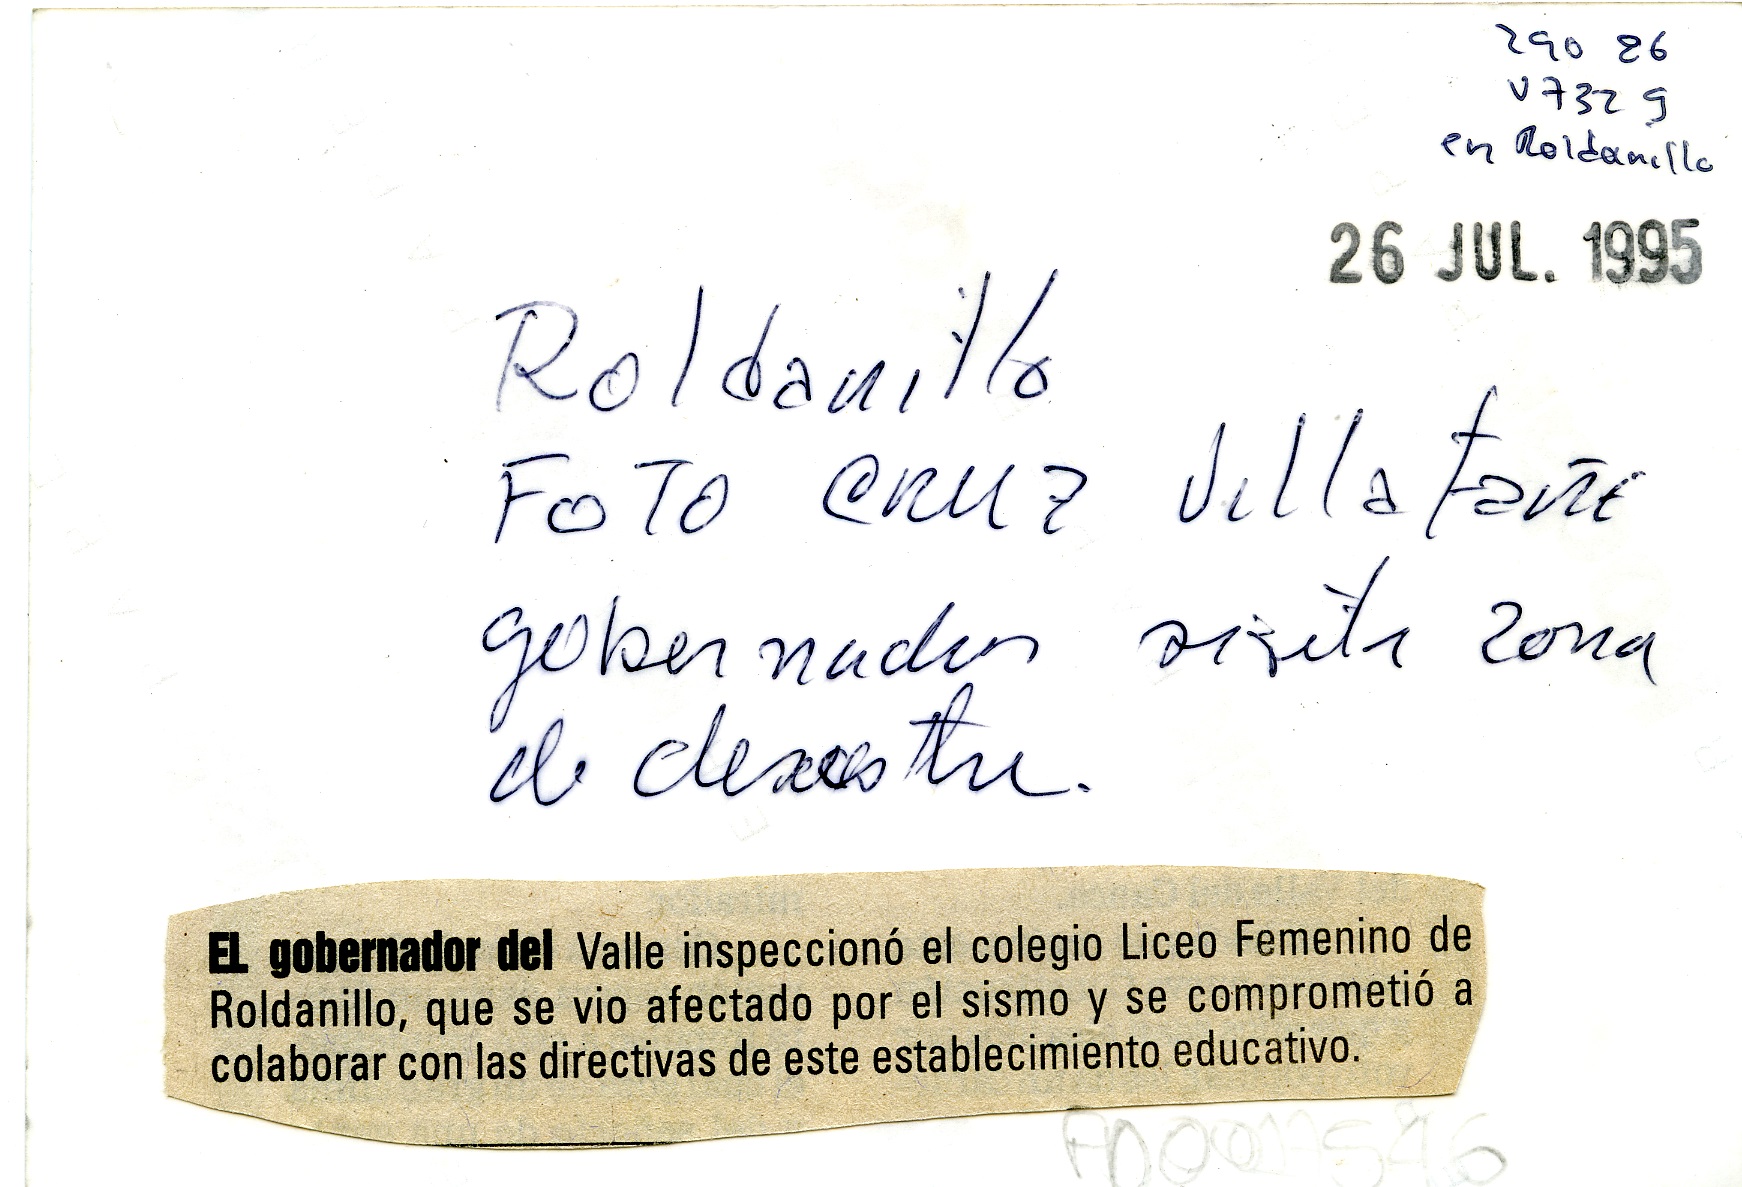 290 86
V732 g
en Roldanillo
26 JUL. 1995
Roldanillo
FOTO CRUZ Villafañe
gobernador visita zona
de desastre.
EL gobernador del Valle inspeccionó el colegio Liceo Femenino de
Roldanillo, que se vio afectado por el sismo y se comprometió a
colaborar con las directivas de este establecimiento educativo.